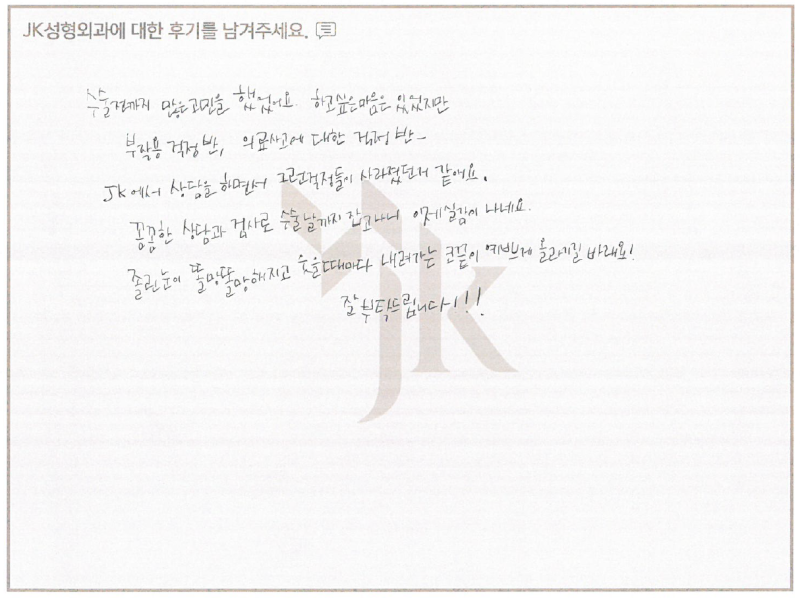 JK성형외과에 대한 후기를 남겨주세요.
수술전까지 많은고민을 했었어요. 하고싶은마음은 있었지만
부작용 걱정 반, 의료사고에 대한 걱정 반~
JK에서 상담을 하면서 그런걱정들이 사라졌던거 같아요.
꼼꼼한 상담과 검사로 수술날까지 잡고나니 이제 실감이 나네요.
졸린눈이 똘망똘망해지고 웃을때마다 내려가는 코끝이 예쁘게 올라가길 바래요!
잘부탁드립니다~!!
jk